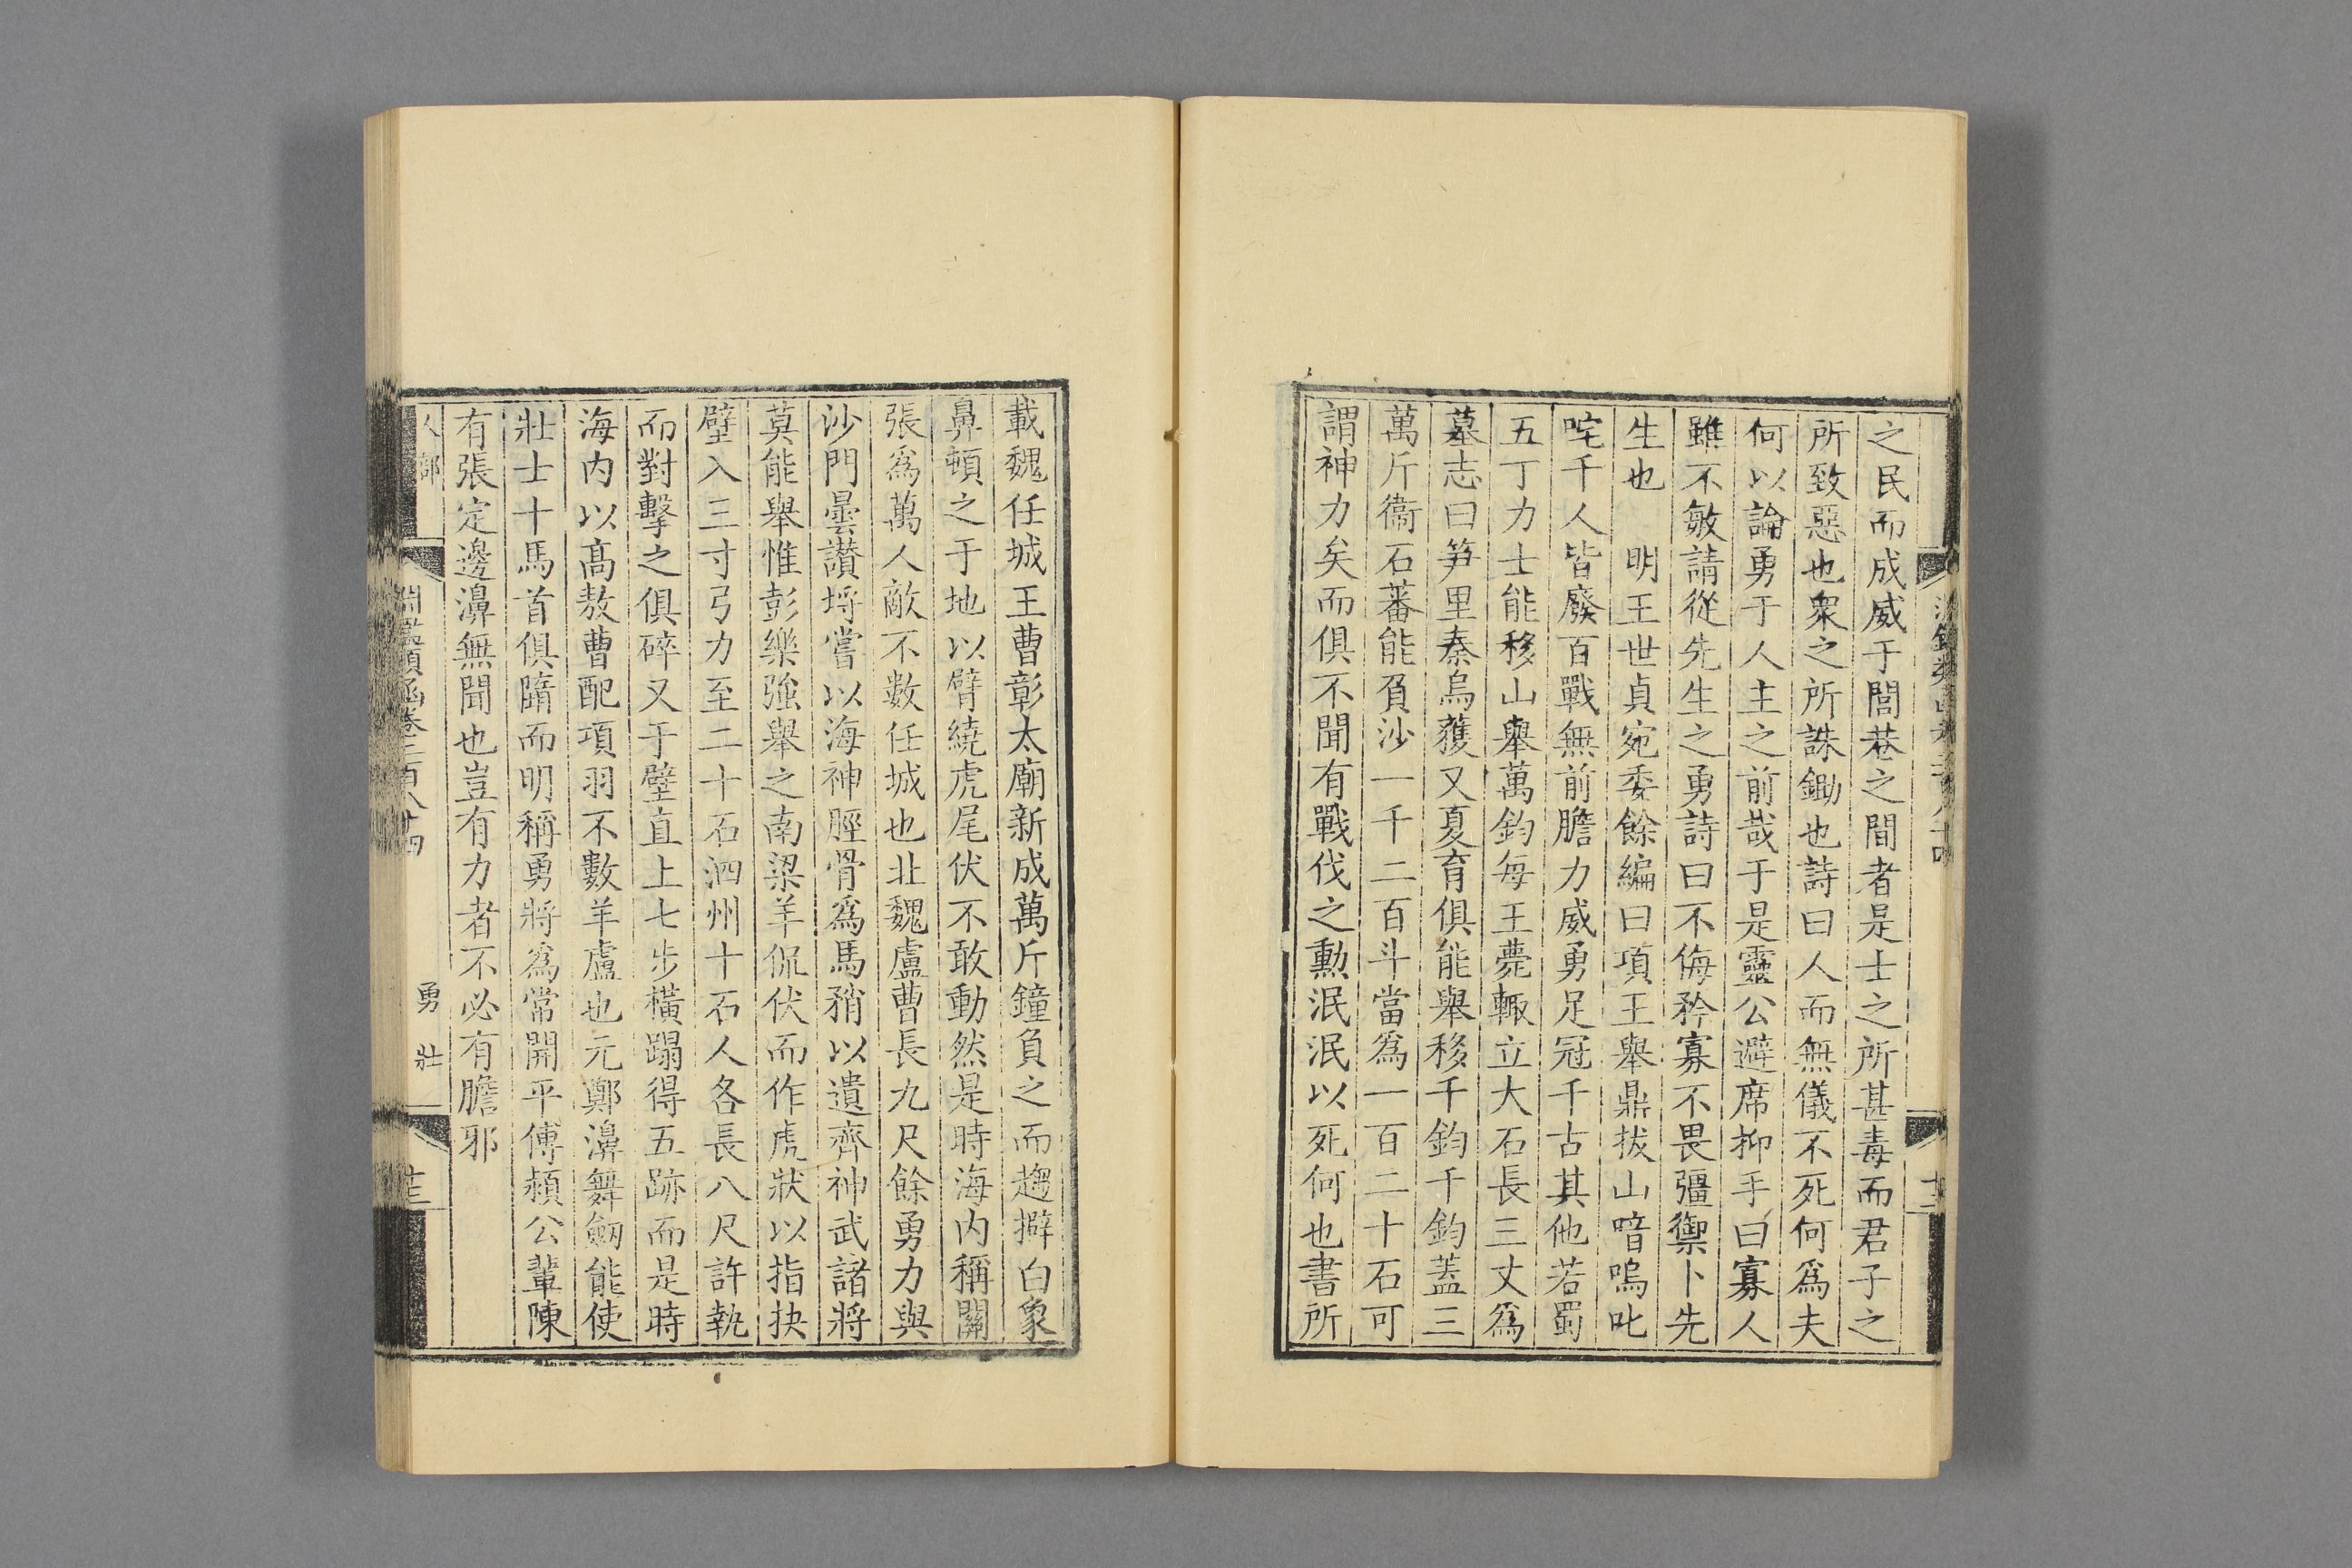 之民而成威于閭巷之間者是士之所甚毒而君子之
所致惡也衆之所誅鋤也詩曰人而無儀不死何爲夫
何以論勇于人主之前哉于是靈公避席抑手曰寡人
雖不敏請從先生之勇詩曰不侮矜寡不畏彊禦卜先
生也　明王世貞宛委餘編曰項王舉鼎拔山喑嗚叱
咤千人皆廢百戰無前膽力威勇足冠千古其他若蜀
五丁力士能移山舉萬鈞每王薨輙立大石長三丈爲
墓志曰笋里秦烏獲又夏育俱能舉移千鈞千鈞蓋三
萬斤衞石蕃能負沙一千二百斗當爲一百二十石可
謂神力矣而俱不聞有戰伐之勲泯泯以死何也書所
載魏任城王曹彰太廟新成萬斤鐘負之而趨擗白象
鼻頓之于地以臂繞虎尾伏不敢動然是時海内稱關
張爲萬人敵不数任城也北魏盧曹長九尺餘勇力與
沙門曇讃埒嘗以海神脛骨爲馬矟以遺齊神武諸將
莫能舉惟彭樂強舉之南梁羊侃伏而作虎狀以指抉
壁入三寸弓力至二十石泗州十石人各長八尺許執
而對擊之俱碎又于壁直上七步橫蹋得五跡而是時
海内以髙敖曹配項羽不數羊盧也元鄭濞舞劒能使
壯士十馬首俱隨而明稱勇將爲常開平傅潁公輩陳
有張定邊濞無聞也豈有力者不必有膽邪
人部
淵鑑類函卷三百八十四
勇壯
十三